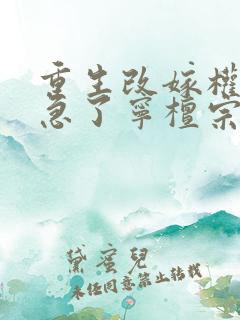 重生改嫁權
急了寧檀宗
黛蜜兒
未經同意禁止轉載